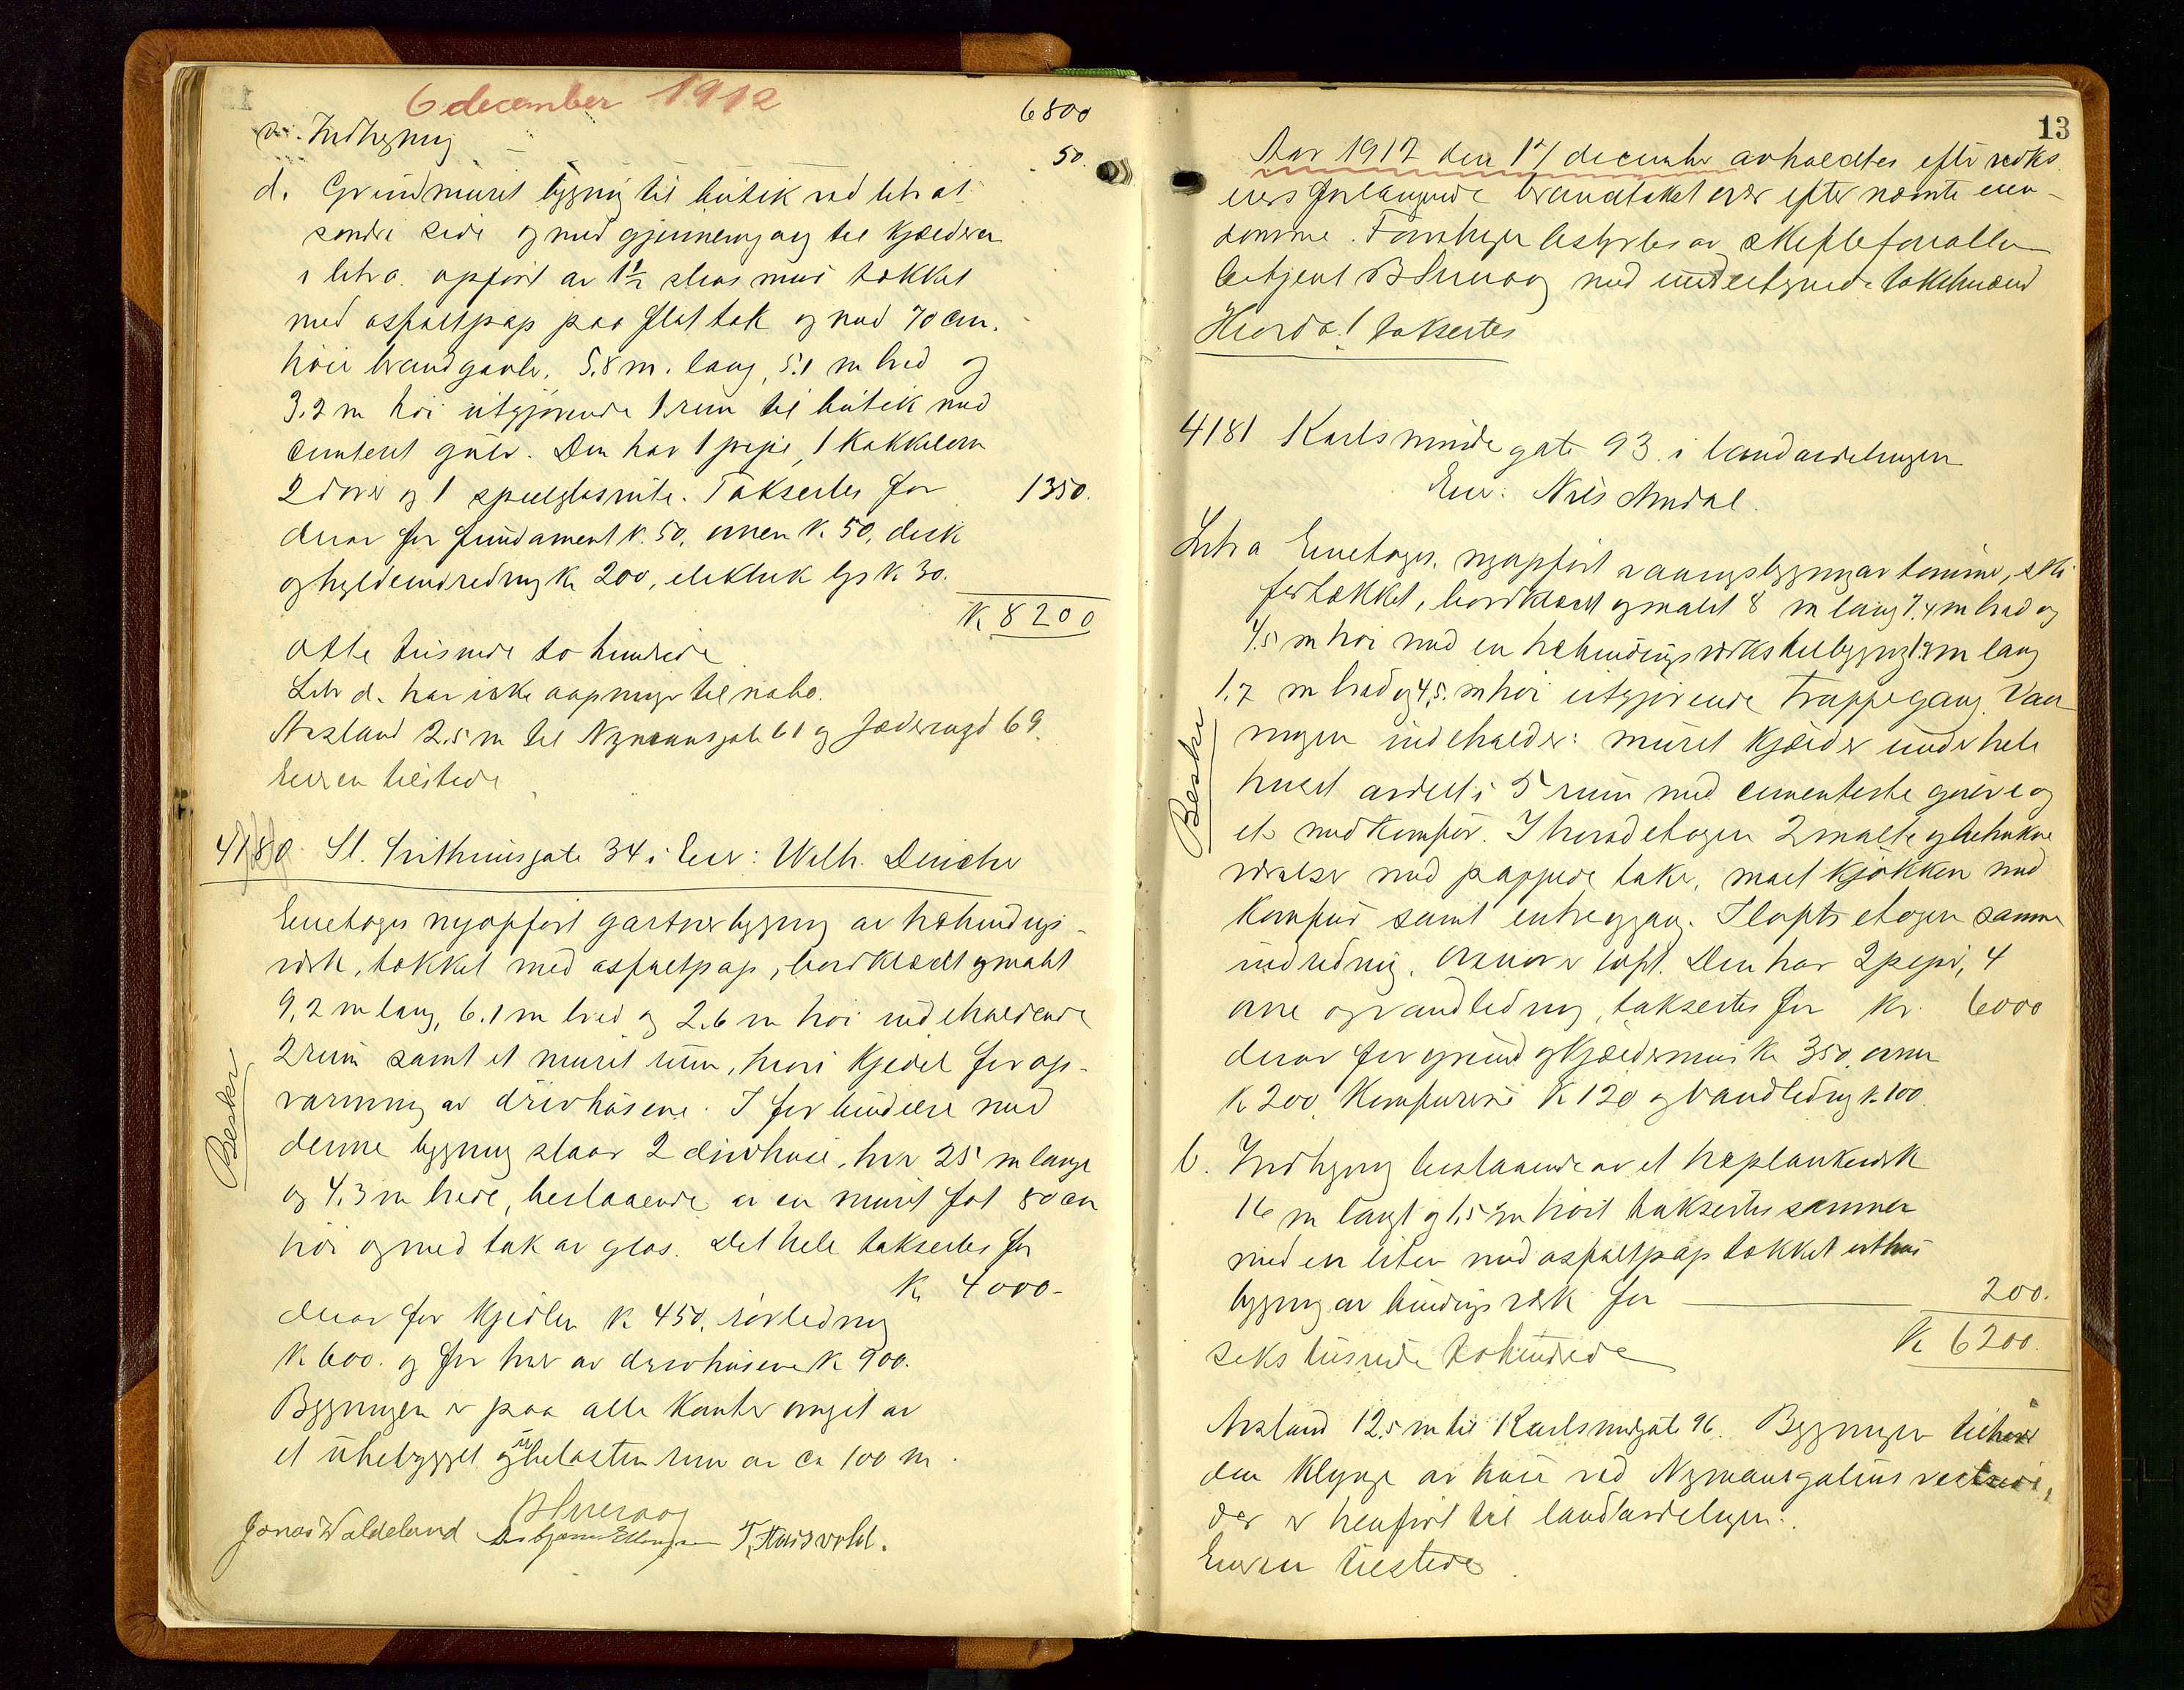 6 december 1912
6800
Indhegning
50.
d. Grundmuret bygning til butik ved litr a's
søndre side og med gjennemgang til kjælderen
i litr a. opført av 1½ stens mur tækket
med asfaltpap paa flat tak og med 70 cm.
høie brandgavle. 5.8 m. lang, 5.1 m bred og
3.2 m høi utgjørende 1 rum til butik med
cementert gulv. Den har 1 pipe, 1 kakkelovn
2 døre og 1 speilglasrute. Taksertes for 1350.
derav for fundament k. 50, ovnen k. 50, disk
og hyldeindredning kr 200, elektrisk lys k. 30.
K 8200
Otte tusinde to hundrede
Litr d. har ikke aapninger til nabo.
Avstand 2.5 m til Nymansgate 61 og Jæderngd 69.
Eieren tilstede
4180. St. Svithunsgate 34 i Eier: Wilh.
Enetages nyopført gartnerbygning av halvbindings-
verk, tækket med asfaltpap, bordklædt og malt
9,2 m lang, 6.1 m bred og 2.6 m høi indeholdende
2 rum samt et muret rum, hvori kjedel for op-
varmning av drivhusene. I forbindelse med
denne bygning staar 2 drivhuse, hver 25 m lange
og 4.3 m brede, bestaaende av en muret fot 80 cm
høi og med tak av glas. Det hele taksertes for
K. 4000-
derav for kjedlen k 450, rørledning
k 600. og for hver av drivhusene k 900.
Bygningen er paa alle kanter omgit av
et ubebygget og ubelastet rum av ca 100 m.
Beskr
Jonas Waldeland Asbjørn Ellingsen T. Hausvold.
13
Aar 1912 den 17 december avholdtes efter rekv.
eiers forlangende brandtakst over efter nævnte eien-
domme. Forretningen bestyrtes av skifteforvalter
betjent med undertegnede takstmænd
Hvorda! taksertes
4181 Karlsminde gate 93 i landavdelingen
Eier: Nils Amdal.
Litra Enetages, nyopført vaaningsbygning av tømmer, ski-
fertækket, bordklædt og malt 8 m lang 7.4 m bred og
4.5 m høi med en halvbindingsverks tilbygning 1.9 m lang
1.7 m bred og 4.5. m høi utgjørende trappegang. Vaa-
ningen indeholder: muret kjælder under hele
huset avdelt i 5 rum med cementerte gulve og
et med komfur. I hovedetagen 2 malte og betrukne
værelser med pappede take, malt kjøkken med
komfur samt entregang. I loftsetagen samme
indredning. Ovenover loft. Den har 2 piper, 4
ovne og vandledning, taksertes for kr. 6000
derav for grund og kjældermur kr 350, ovner
k 200, komfurene k 120 og vandledning k. 100.
Beskr
b. Indhegning bestaaende av et træplankeverk
16 m langt og 1,5 m høit taksertes sammen
med en liten med asfaltpap tækket uthus
bygning av bindingsverk for 200.
K 6200.
Seks tusinde tohundrede
Avstand 12,5 m til Karlsmindegate 96. Bygningen tilhører
den klynge av huse ved Nymansgatens vestside,
der er henført til landavdelingen.
Eieren tilstede.